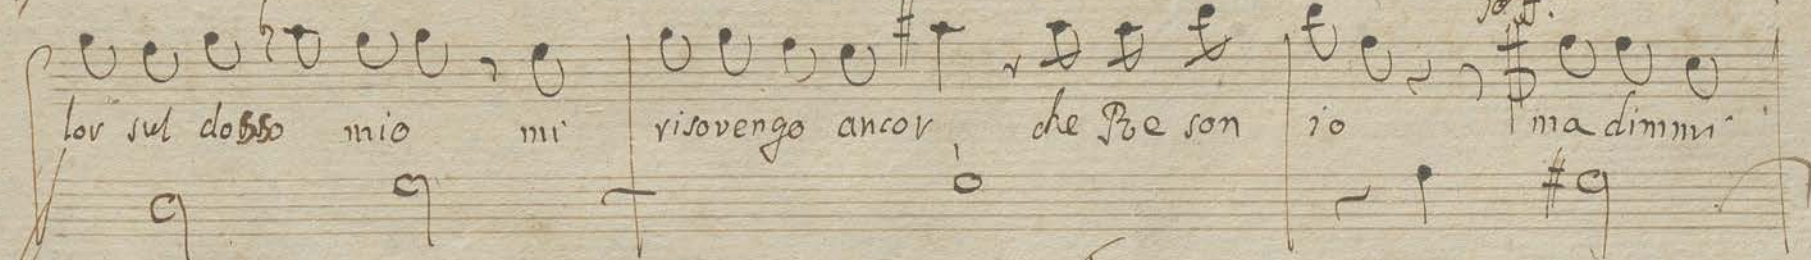 lor sul dosso mio mi risovengo ancor che Re son io ma dimmi